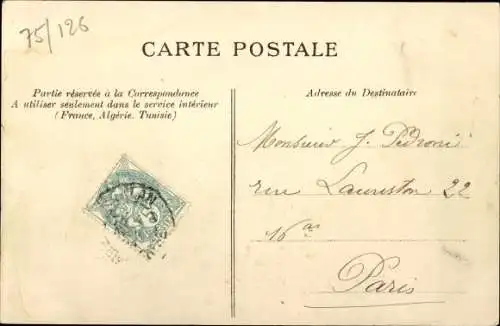 75/126
CARTE POSTALE
Partie réservée à la Correspondance
A utiliser seulement dans le service intérieur
(France, Algérie, Tunisie)
Adresse du Destinataire
Monsieur J. Pedroni
rue Lauriston 22
16 as
Paris